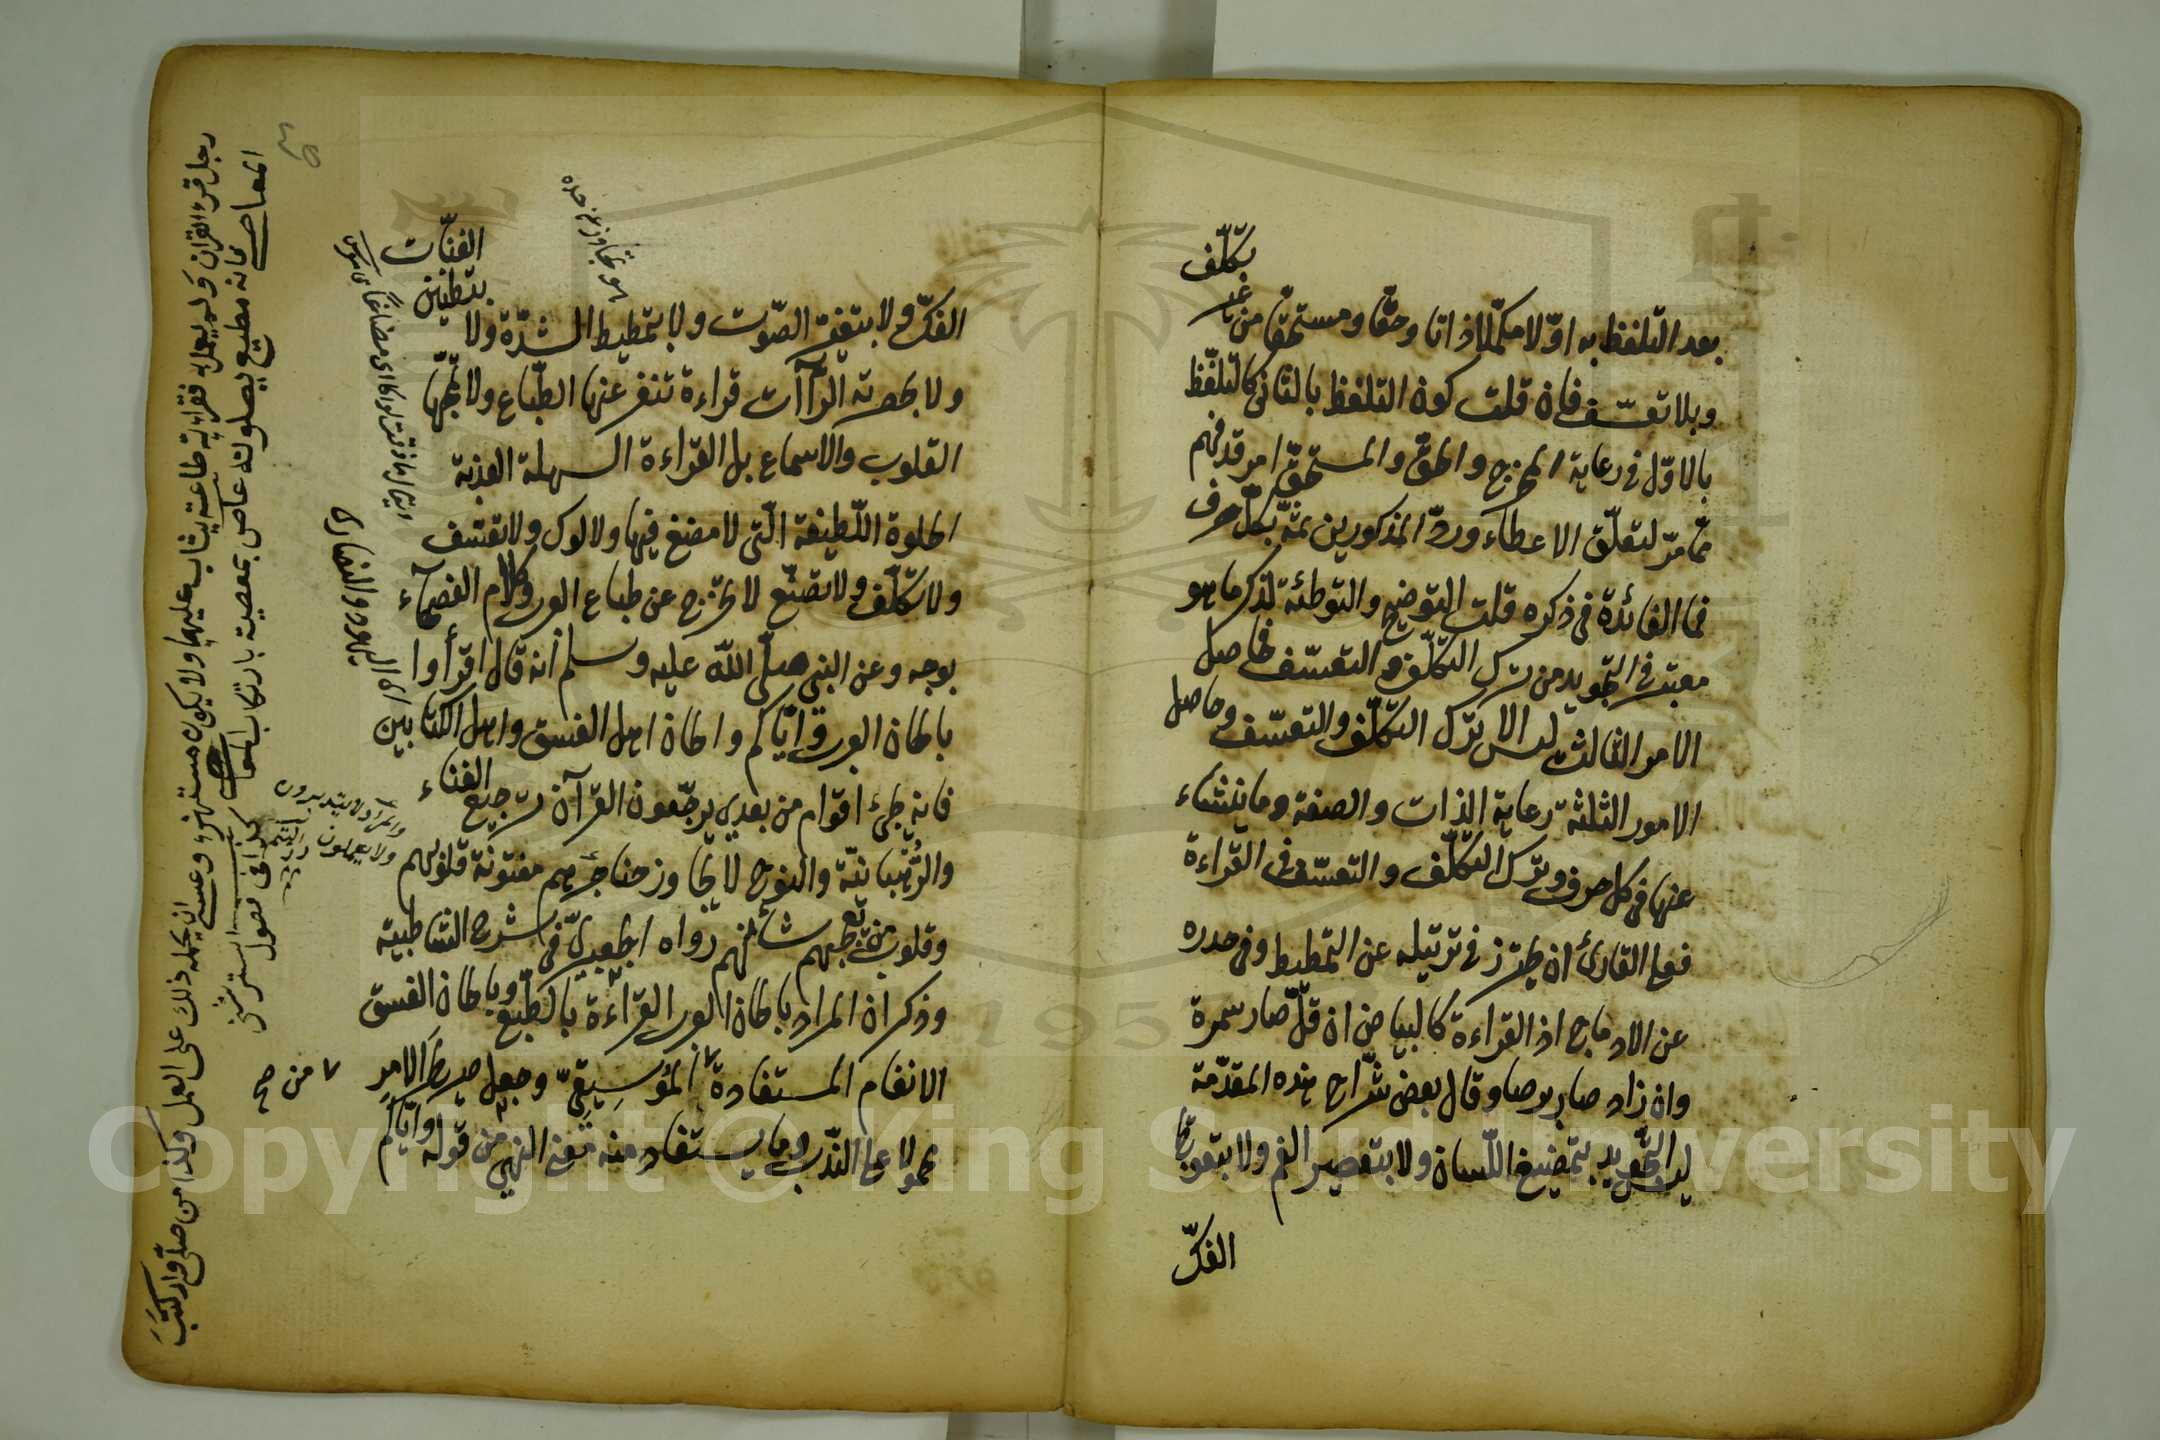 بعد التلفظ به اوّلا مكمّلا ذاتا وحقّا ومستحقا من غير تكلّف
وبلا تعسّف فان قلت كون التلفظ بالثانى كالتلفّظ
بالاوّل فى رعاية المخرج والحقّ والمستحقّ امر قد فهم
ممّا مرّ لتعلّق الاعطاء وردّ المذكورين ثمّة بكلّ حرف
فما الفائدة فى ذكره قلت التوضيح والتوطئة لذكر ما هو
معتبر فى التجويد من ترك التكلّف والتعسّف فحاصل
الامر الثالث ليس الا ترك التكلّف والتعسّف وحاصل
الامور الثلثة رعاية الذات والصفة وما ينشاء
عنها فى كل حرف وترك التكلّف والتعسّف فى القراءة
فعلى القارئ ان يحترز فى ترتيله عن التمطيط وفى حدره
عن الادماج اذ القراءة كالبياض ان قلّ صار سمرة
وان زاد صار برصا وقال بعض شرّاح هذه المقدّمة
ليس التجويد بتمضيغ اللّسان ولا بتقعير الفم ولا بتعويج
الفكّ
الفكّ ولا بتغيير الصّوت ولا بتمطيط الشدّة ولا بتطنين الغنّات
ولا بحصرمة الرّاآت قراءة تنفر عنها الطّباع ولا تمجّها
القلوب والاسماع بل القراءة السهلة العذبة
الحلوة اللّطيفة الّتى لا مضغ فيها ولا لوك ولا تعسّف
ولا تكلّف ولا تصنّع لا تخرج عن طباع العرب وكلام الفصحاء
بوجه وعن النبى صلّى اللّه عليه وسلم انه قال اقرأوا
بالحان العرب وايّاكم والحان اهل الفسق واهل الكتابين
فانه يجئ اقوام من بعدى يرجّعون القرآن ترجيع الغناء
والرّهبانيّة والنوح لا يجاوز حناجرهم مفتونة قلوبهم
وقلوب من يعجبهم شأنهم رواه الجعبرىّ فى شرح الشاطبية
وذكر ان المراد بالحان العرب القراءة بالطّبع وبالحان الفسق
الانغام المستفادة من الموسيقىّ وجعل صريح الامر
محمولا على النّدب وما يستفاد منه معنى النهى من قوله وايّاكم
اى اليهودى والنصارى
والمراد لا يتدبرون
ولا يعملون
من صح
رجل قرء القرآن ولم يعمل به فقرائته طاعته يثاب عليها ولا يكون مستهزء وعسى ان يحمله ذلك على العمل وكذا من صلّى وارتكب
المعاصى فانه مطيع بصلوته عاص بمعصية بارتكاب المعاصى كذا فى فصول
استروشنى